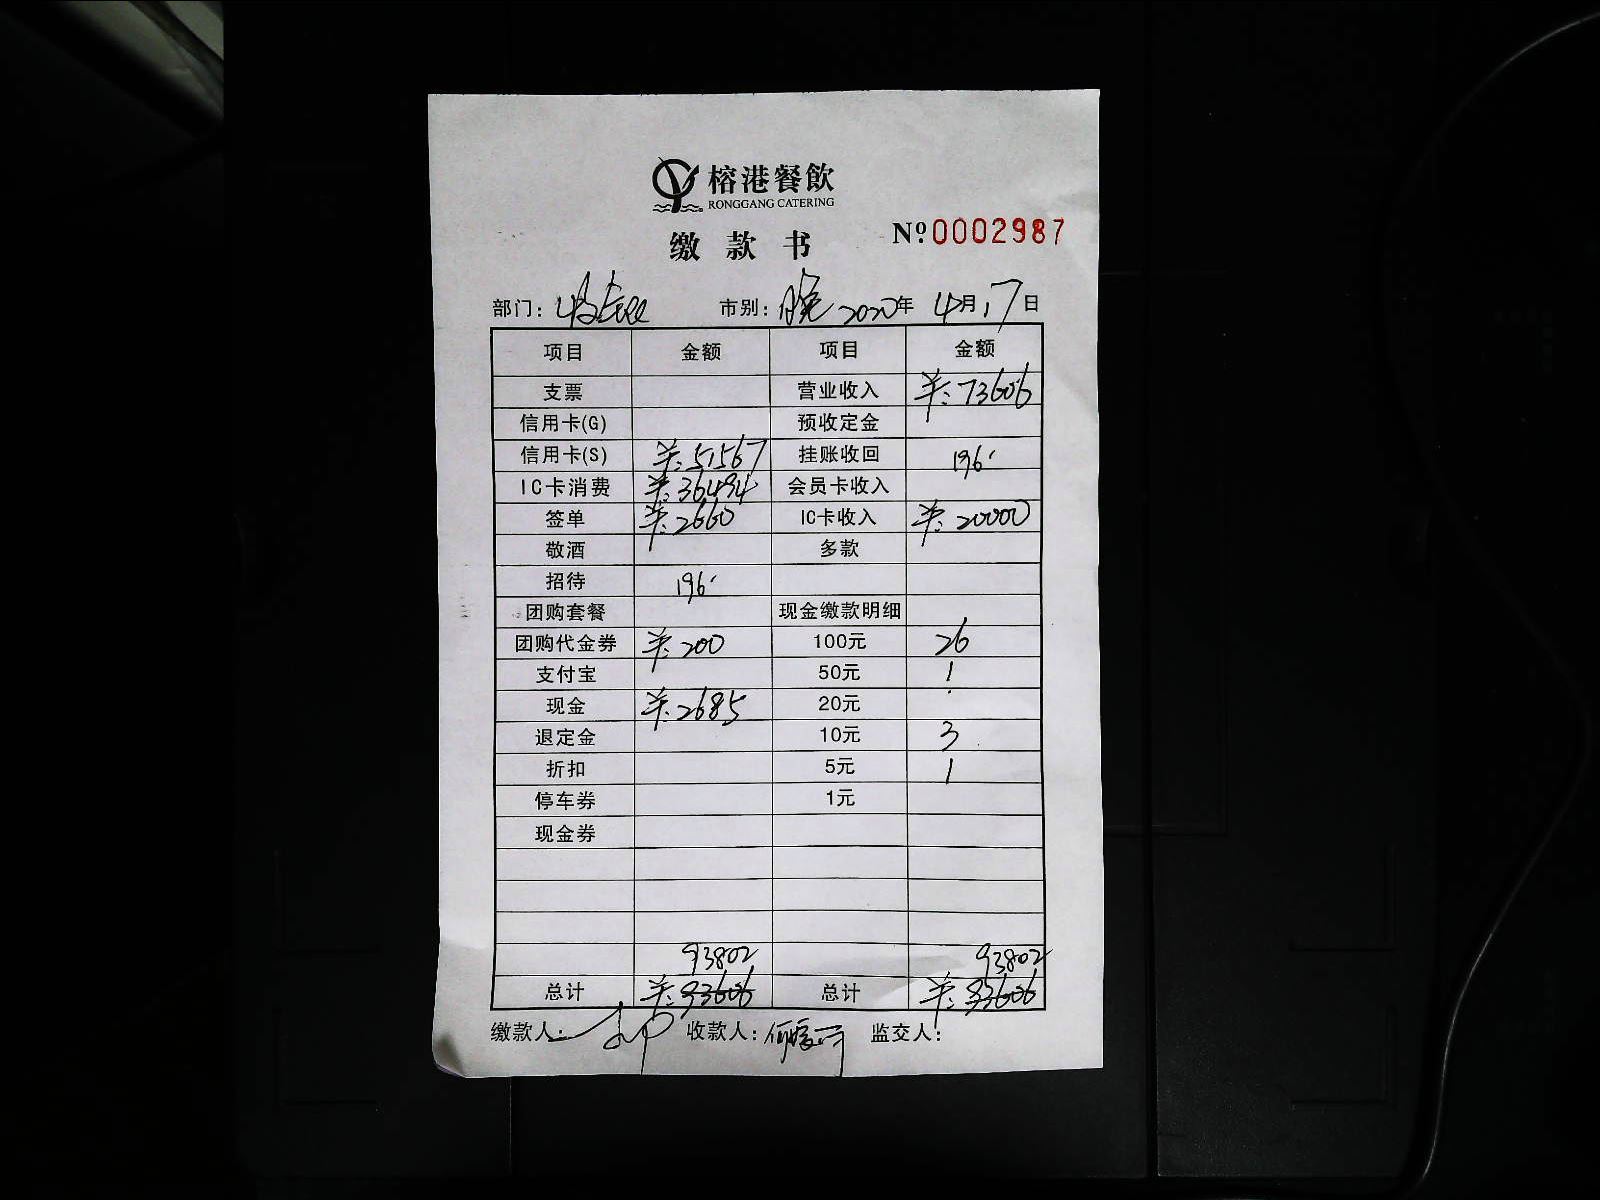 榕港餐飲
RONGGANG CATERING
缴款书 №0002987
部门: 市别: 晚 2020年 4月17日
项目 金额 项目 金额
支票 营业收入 羊:73606
信用卡(G) 预收定金
信用卡(S) 羊:51567 挂账收回 196
IC卡消费 羊:36494 会员卡收入
签单 羊:2660 IC卡收入 羊:20000
敬酒 多款
招待 196
团购套餐 现金缴款明细
团购代金券 羊:200 100元 26
支付宝 50元 1
现金 羊:2685 20元
退定金 10元 3
折扣 5元 1
停车券 1元
现金券
93802 93802
总计 羊:93606 总计 羊:93606
缴款人: 收款人: 监交人: